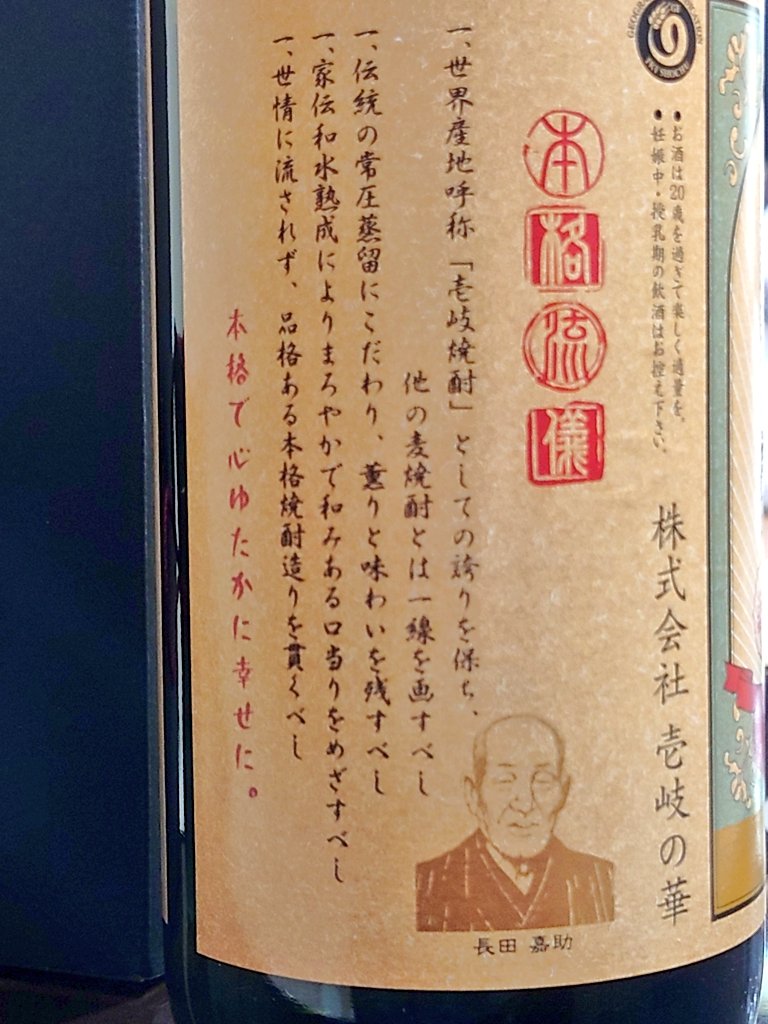 GEOGRAPHICAL INDICATION
GI
IKI SHOCHU
●お酒は20歳を過ぎて楽しく適量を。
●妊娠中・授乳期の飲酒はお控え下さい。
株式会社 壱岐の華
本格流儀
一、世界産地呼称「壱岐焼酎」としての誇りを保ち、
他の麦焼酎とは一線を画すべし
一、伝統の常圧蒸留にこだわり、薫りと味わいを残すべし
一、家伝和水熟成によりまろやかで和みある口当りをめざすべし
一、世情に流されず、品格ある本格焼酎造りを貫くべし
本格で心ゆたかに幸せに。
長田 嘉助